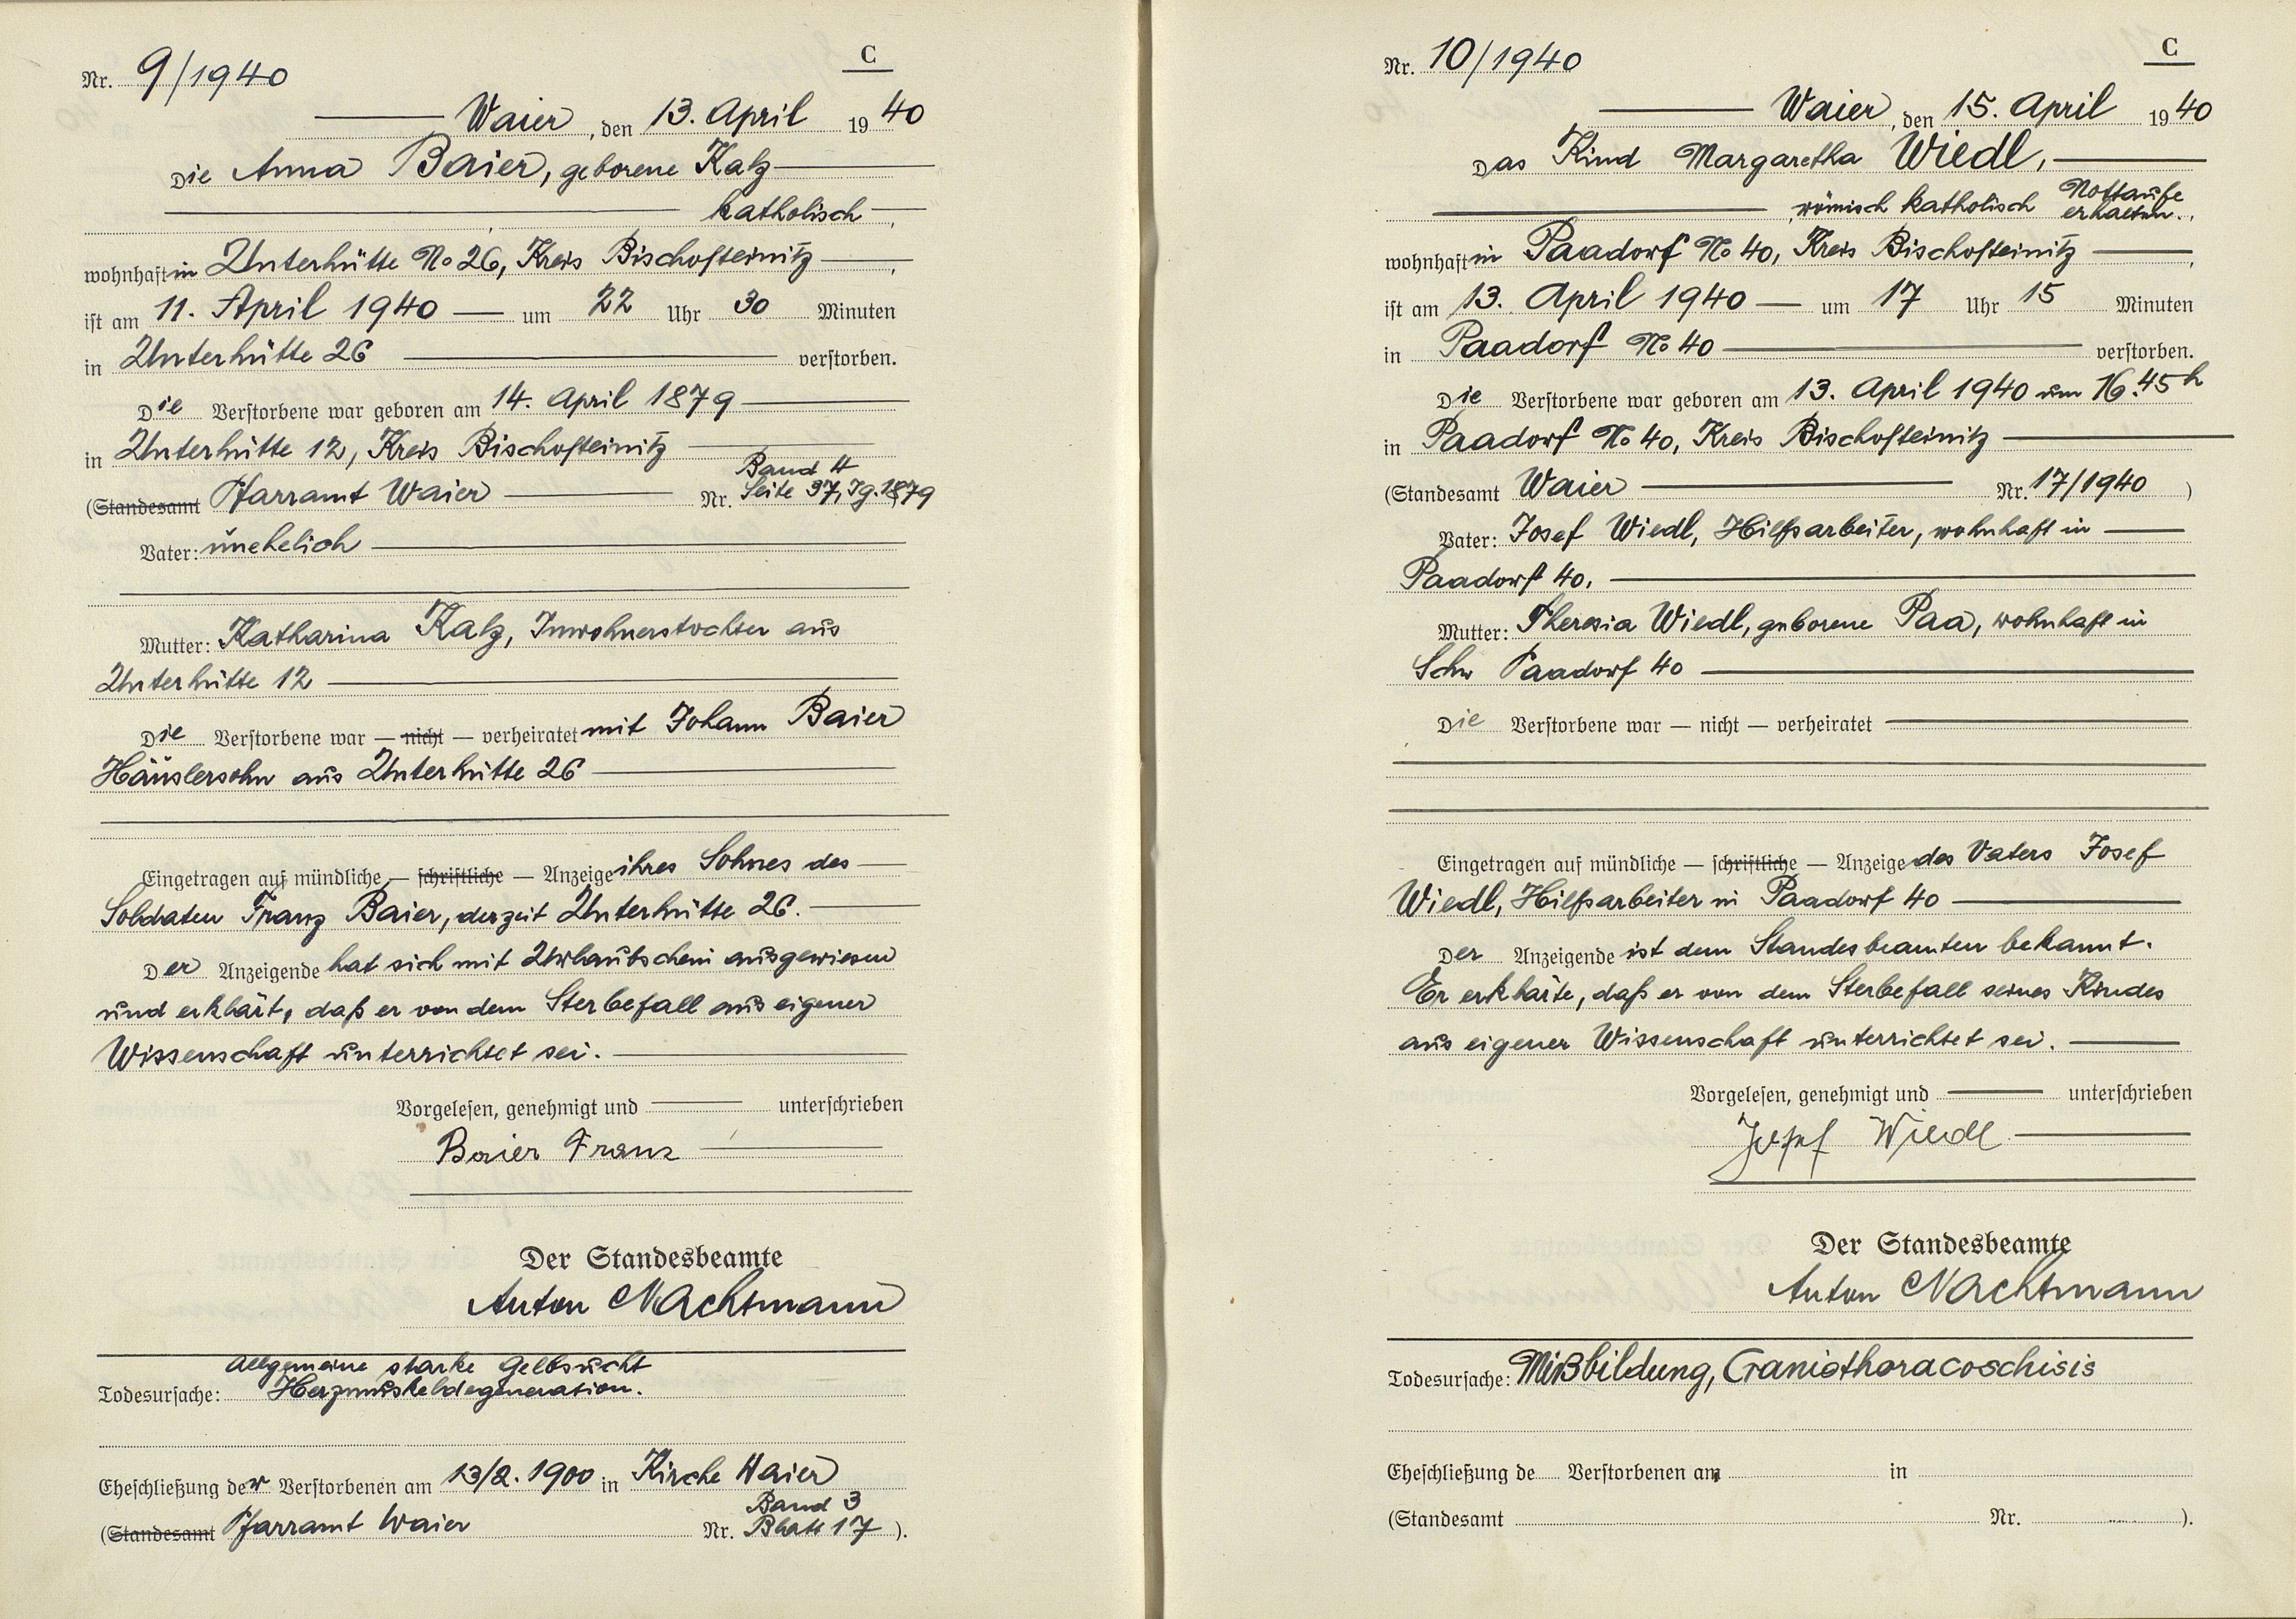 C
Nr. 9/1940
Waier, den 13. April 1940
Die Anna Baier, geborene Kalz
katholisch,
wohnhaft in Unterhütte No 26, Kreis Bischofteinitz,
ist am 11. April 1940 um 22 Uhr 30 Minuten
in Unterhütte 26 verstorben.
Die Verstorbene war geboren am 14. April 1879
in Unterhütte 12, Kreis Bischofteinitz
Band 4
(Standesamt Pfarramt Waier Nr. Seite 37, Jg. 1879
Vater: unehelich
Mutter: Katharina Kalz, Inwohnerstochter aus
Unterhütte 12
Die Verstorbene war — nicht — verheiratet mit Johann Baier
Häuslersohn aus Unterhütte 26
Eingetragen auf mündliche — schriftliche — Anzeige ihres Sohnes des
Soldaten Franz Baier, derzeit Unterhütte 26.
Der Anzeigende hat sich mit Urlaubschein ausgewiesen
und erklärt, daß er von dem Sterbefall aus eigener
Wissenschaft unterrichtet sei.
Vorgelesen, genehmigt und unterschrieben
Baier Franz
Der Standesbeamte
Anton Nachtmann
Allgemeine starke Gelbsucht
Todesursache: Herzmuskeldegeneration.
Eheschließung der Verstorbenen am 13/2. 1900 in Kirche Waier
Band 3
(Standesamt Pfarramt Waier Nr. Blatt 17 ).
C
Nr. 10/1940
Waier, den 15. April 1940
Das Kind Margaretha Wiedl,
römisch katholisch Nottaufe
erhalten.,
wohnhaft in Paadorf No 40, Kreis Bischofteinitz,
ist am 13. April 1940 um 17 Uhr 15 Minuten
in Paadorf No 40 verstorben.
Die Verstorbene war geboren am 13. April 1940 um 16.45h
in Paadorf No 40, Kreis Bischofteinitz
(Standesamt Waier Nr. 17/1940 )
Vater: Josef Wiedl, Hilfsarbeiter, wohnhaft in
Paadorf 40.
Mutter: Theresia Wiedl, geborene Paa, wohnhaft in
Schw Paadorf 40
Die Verstorbene war — nicht — verheiratet
Eingetragen auf mündliche — schriftliche — Anzeige des Vaters Josef
Wiedl, Hilfsarbeiter in Paadorf 40
Der Anzeigende ist dem Standesbeamten bekannt.
Er erklärte, daß er von dem Sterbefall seines Kindes
aus eigener Wissenschaft unterrichtet sei.
Vorgelesen, genehmigt und unterschrieben
Josef Wiedl
Der Standesbeamte
Anton Nachtmann
Todesursache: Mißbildung, Craniothoracoschisis
Eheschließung de Verstorbenen am in
(Standesamt Nr. ).